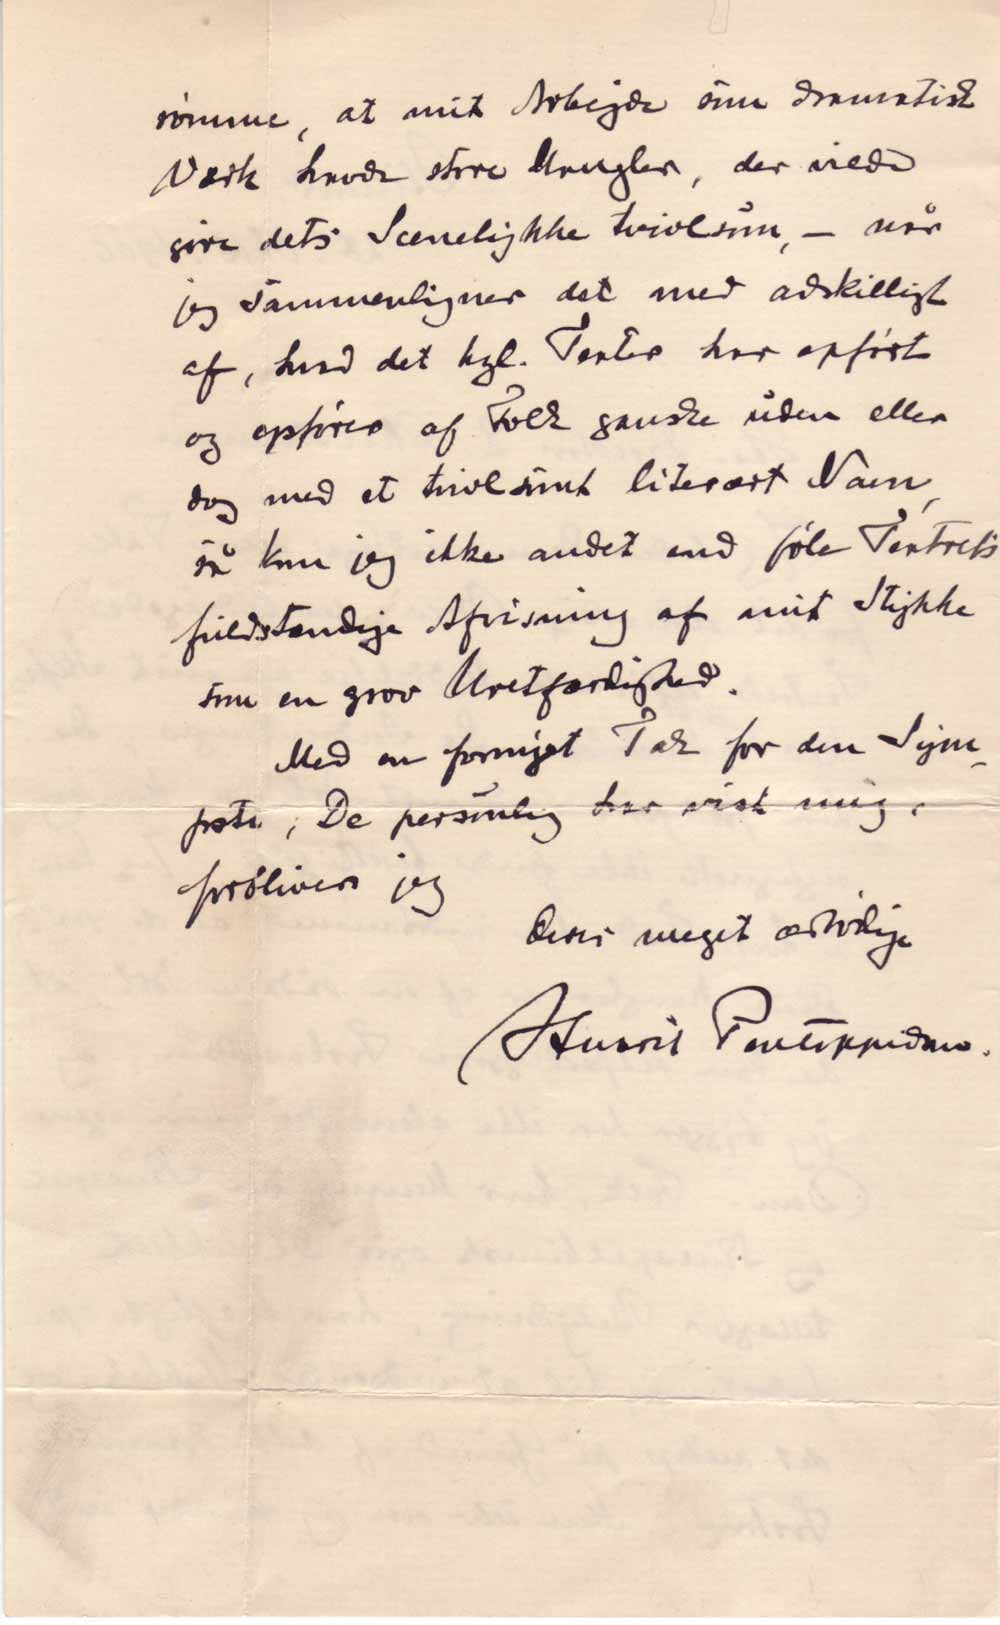 rømme, at mit Arbejde som dramatisk
Værk havde store Mangler, der vilde
gøre dets Scenelykke tvivlsom, – når
jeg sammenligner det med adskilligt
af, hvad det kgl. Teater har opført
og opfører af Folk ganske uden eller
dog med et tvivlsomt literært Navn,
så kan jeg ikke andet end føle Teatrets
fuldstændige Afvisning af mit Stykke
som en grov Uretfærdighed.
Med en fornyet Tak for den Sym-
pati, De personlig har vist mig,
forbliver jeg
Deres meget ærbødige
Henrik Pontoppidan.